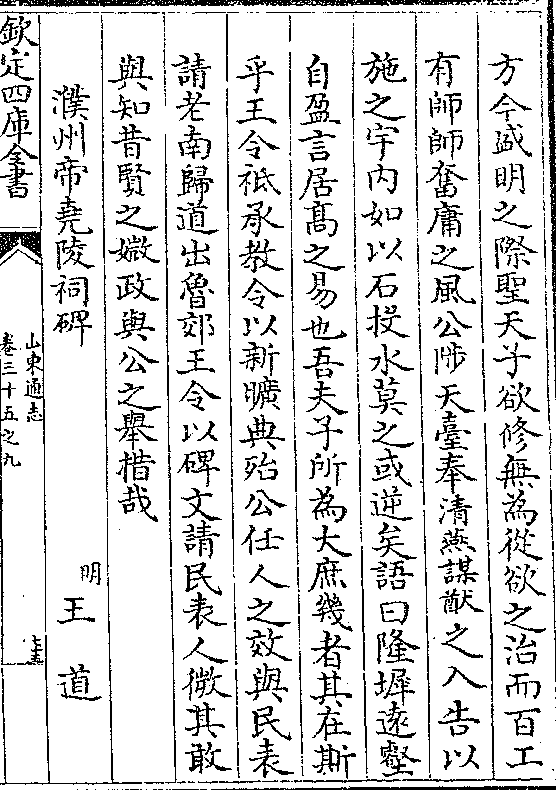 方今盛明之際聖天子欲修無為從欲之治而百工
有師師奮庸之風公陟天臺奉清燕謀猷之入告以
施之宇内如以石投水莫之或逆矣語曰隆墀遠壑
自盈言居髙之易也吾夫子所為大庶幾者其在斯
乎王令祗承教令以新曠典殆公任人之效與民表
請老南歸道出魯郊王令以碑文請民表人微其敢
與知昔賢之媺政與公之舉措哉
濮州帝堯陵祠碑
明王道
欽定四庫全書
山東通志
卷三十五之九